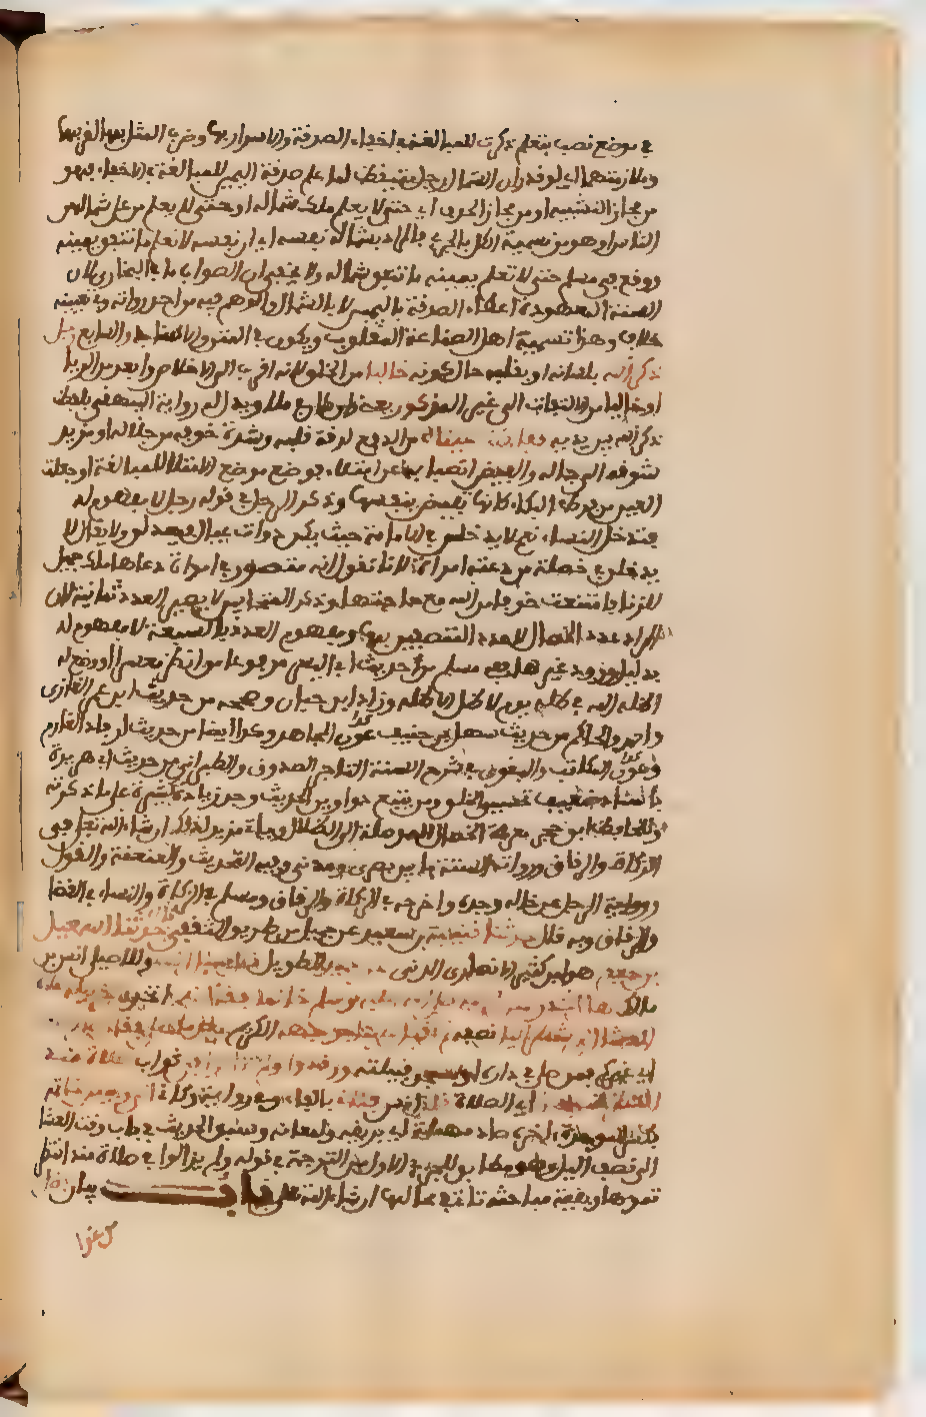 في موضع نصب بتعلم ذكرت للمبالغة في اخفاء الصدقة والاسرار بها وضرب المثل بهما لقربهما
وملازمتهما اي لو قدر ان الشمال رجل متيقظ لما علم صدقة اليمين للمبالغة في الاخفاء فهو
من مجاز التشبيه او من مجاز الحذف اي حتى لا يعلم ملك شماله او حتى لا يعلم من على شماله من
الناس او هو من تسمية الكل بالجزء فالمراد بشماله نفسه اي ان نفسه لا تعلم ما تنفق يمينه
ووقع في مسلم حتى لا تعلم يمينه ما تنفق شماله ولا يخفى ان الصواب ما في البخاري لان
السنة المعهودة اعطاء الصدقة باليمين لا بالشمال والوهم فيه من احد رواته وفي تعيينه
خلاف وهذا تسمية اهل الصناعة المقلوب ويكون في المتن والاسناد والسابع رجل
ذكر الله بلسانه او بقلبه حال كونه خاليا من الخلق لانه اقرب الى الاخلاص وابعد من الريا
او خاليا من الالتفات الى غير المذكور بعد وان كان في ملا ويدل له رواية البيهقي بلفظ
ذكر الله بين يديه ففاضت عيناه من الدمع لرقة قلبه وشدة خوفه من جلاله او مزيد
شوقه الى جماله والفيض انصباب عن امتلاء فوضع موضع الامتلا للمبالغة او جعلت
العين من فرط البكاء كانها تفيض بنفسها وذكر الرجل في قوله رجل لا مفهوم له
فتدخل النساء نعم لا يدخلن في الامامة حيث يكن ذوات عيال فيعدلن ولا يقال لا
يدخلن في خصلة من دعته امراة لانا نقول انه متصور في امراة دعاها ملك جميل
للزنا فامتنعت خوفا من الله مع حاجتها وذكر المتحابين لا يصير العدد ثمانية لان
المراد عدد الخصال لا عدد المتصفين بها ومفهوم العدد بالسبعة لا مفهوم له
بدليل ورود غيرها ففي مسلم من حديث ابي اليسر مرفوعا من انظر معسرا او وضع له
اظله الله في ظله يوم لا ظل الا ظله وزاد ابن حبان وصححه من حديث ابن عمر الغازي
واحمد والحاكم من حديث سهل بن حنيف عون المجاهد وكذا ايضا من حديث ارفاد الغارم
وعون المكاتب والبغوي في شرح السنة التاجر الصدوق والطبراني من حديث ابي هريرة
باسناد ضعيف تحسين الخلق ومن تتبع دواوين الحديث وجد زيادة كثيرة على ما ذكرته
وللحافظ ابن حجر معرفة الخصال الموصلة الى الظلال وياتي مزيد لذلك ان شاء الله تعالى في
الزكاة والرقاق ورواة السنة ما بين بصري ومدني وفيه التحديث والعنعنة والقول
ورواية الرجل عن خاله وجده واخرجه في الزكاة والرقاق ومسلم في الزكاة والنساء في القضا
والرقاق وبه قال حدثنا قتيبة بن سعيد عن جميل بن طريف الثقفي حدثنا اسمعيل
بن جعفر هو ابن كثير الانصاري المدني عن حميد الطويل وللاصيلي انس بن
مالك هل اتخذ رسول الله صلى الله عليه وسلم خاتما فقال نعم اخر ليلة صلاة
العشاء الى شطر الليل نصفه ثم اقبل علينا بوجهه الكريم بعد ما صلى فقال
اي غيركم ممن صلى في داره او مسجد قبيلته ورقدوا ولم تزالوا في ثواب صلاة منذ
اي الصلاة قال انس فكاني بالفاء وفي رواية وكاني انظر الى وبيص خاتمه
بكسر الموحدة اخره صاد مهملة اي بريقه ولمعانه وسبق الحديث في باب وقت العشا
الى نصف الليل ومطابق للجزء الاول من الترجمة في قوله ولم تزالوا في صلاة منذ انتظر
تموها وبقية مباحثه تاتي في محالها ان شاء الله تعالى باب بيان فضل
من غدا